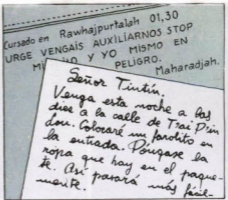 Cursado en Rawhajpurtalah 01,30
URGE VENGAIS AUXILIARNOS STOP
MI Y YO MISMO EN
PELIGRO.
Maharadjah.
Señor Tintín.
Venga esta noche a las
diez a la calle de Trai D'jin
Lou. Colocaré un farolito en
la entrada. Póngase la
ropa que hay en el paque-
te. Así pasará más fácil-
mente.